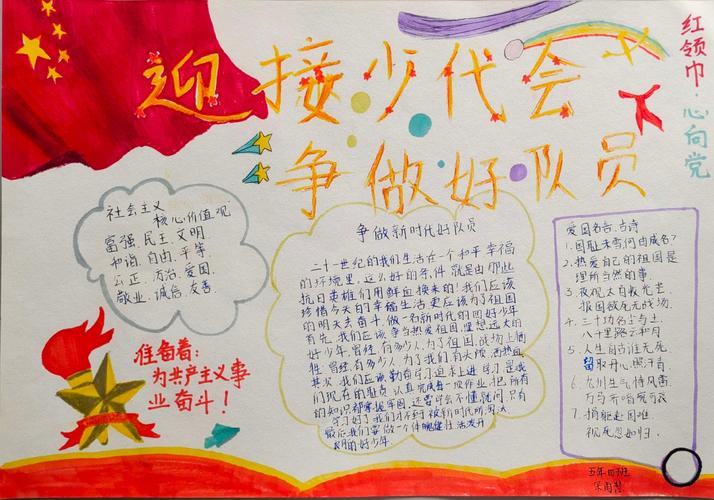 迎接少代会
争做好队员
红领巾·心向党
社会主义
核心价值观
富强 民主 文明
和谐.自由.平等.
公正.法治.爱国.
敬业.诚信.友善.
准备着:
为共产主义事
业奋斗!
争做新时代好队员
二十一世纪的我们生活在一个和平幸福
的环境里,这么好的条件就是由那些
抗日英雄们用鲜血换来的!我们应该
珍惜今天的幸福生活更应该为了祖国
的明天去奋斗,做一名新时代的四好少年
首先,我们应该争当热爱祖国,理想远大的
好少年.曾经,有多少人,为了祖国,战场上牺
牲,曾经,有多少人,为了我们,有大颅,洒热血.
其次,我们应该勤奋学习追求上进.学习是我
们现在的职责,认真完成每一项作业,把所有
的知识都掌握牢固,还要学会不懂就问,只有
学习好了我们才不到被新时代所淘汰
最后我们要做一个体魄健活泼开
朗的好少年.
爱国名言、古诗
1.国耻未雪何由成名?
2.热爱自己的祖国是
理所当然的事.
3.夜视太白收光芒,
报国欲死无战场.
4.三十功名尘与土.
八千里路云和月
5.人生自古谁无死
留取丹心照汗青
6.九州生气恃风雷.
万马齐喑究可哀
7.捐躯赴国难.
视死忽如归.
五年四班